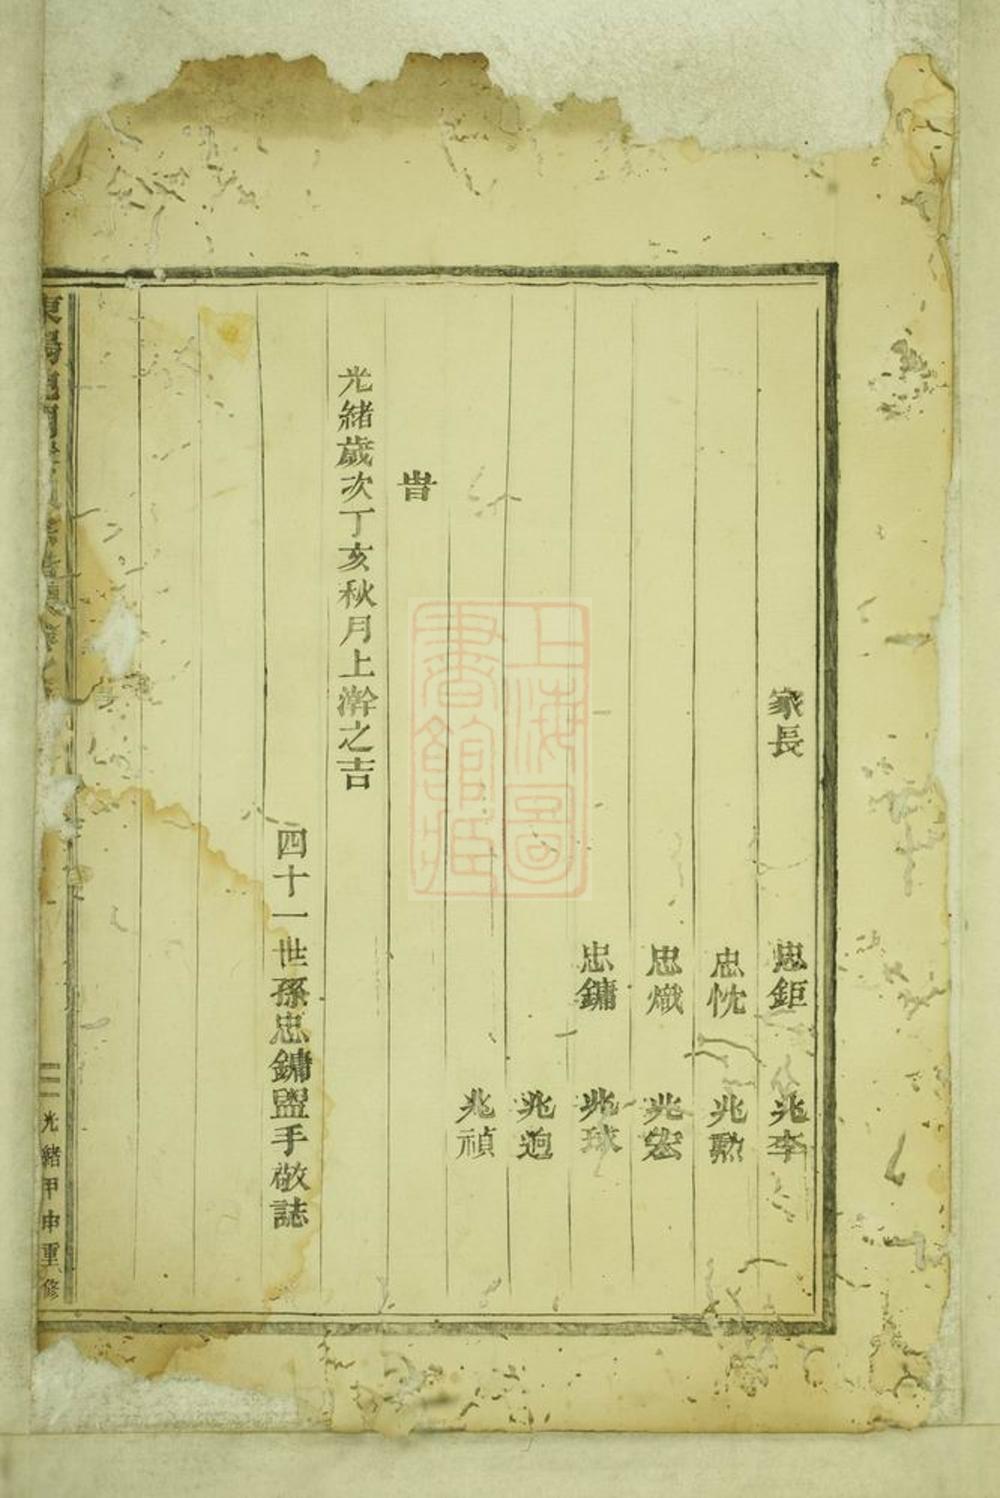 家長
忠鉅 兆李
忠忱 兆勲
忠熾 兆宏
忠鏞 兆球
兆迥
兆禎
旹
光緒歲次丁亥秋月上澣之吉
四十一世孫忠鏞盥手敬誌
東陽
光緒甲申重修
上海圖書館藏